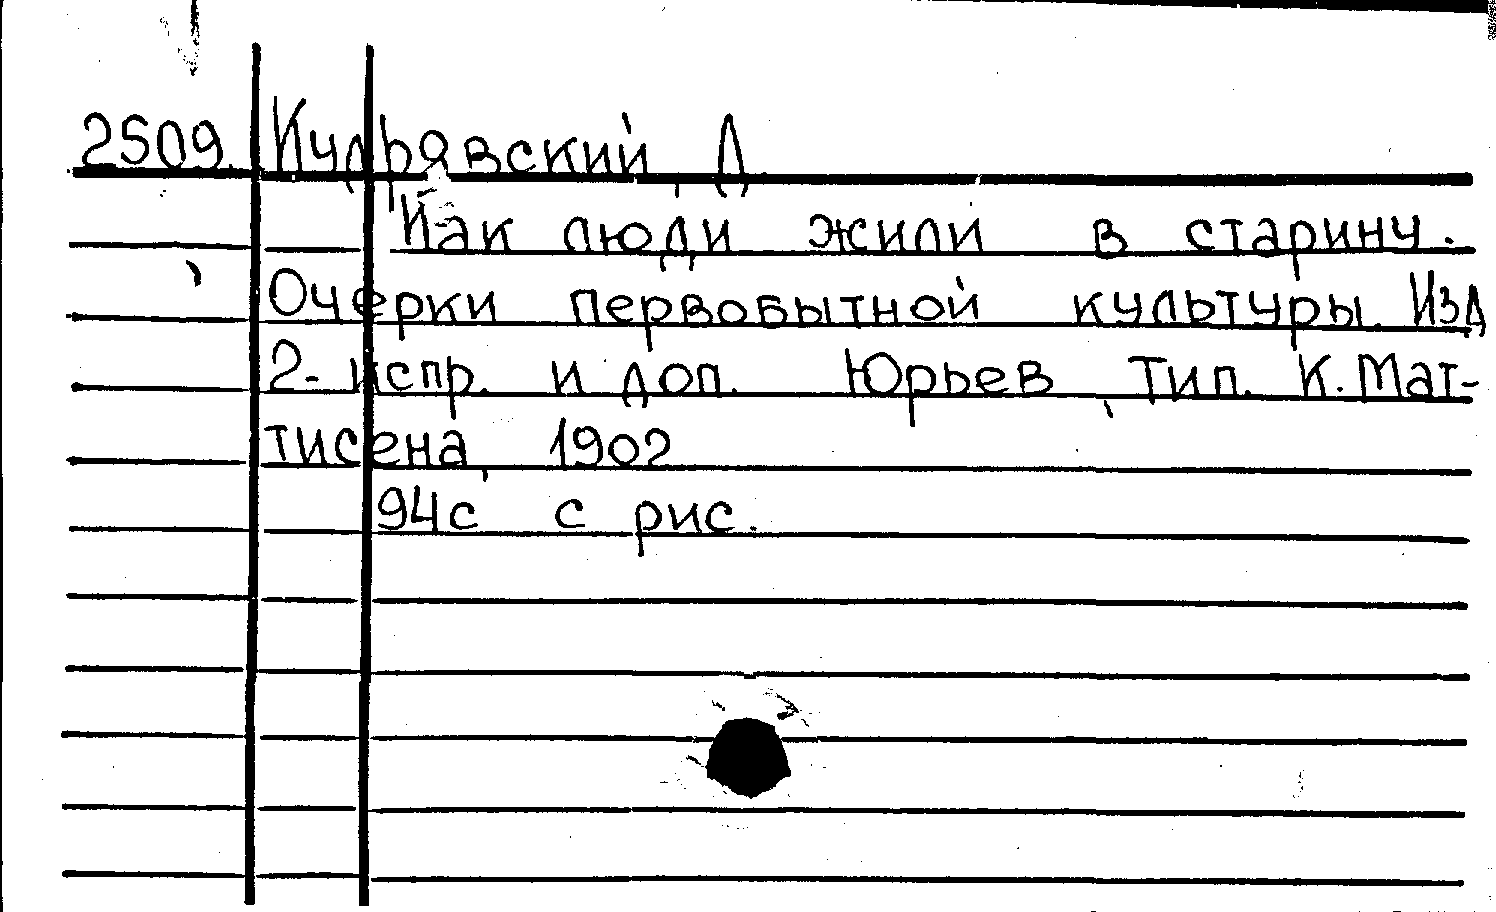 2509 Кудрявский, Д.
Как люди жили в старину.
Очерки первобытной культуры. Изд
2-испр. и доп. Юрьев, Тип. К. Мат-
тисена, 1902
94с с рис.